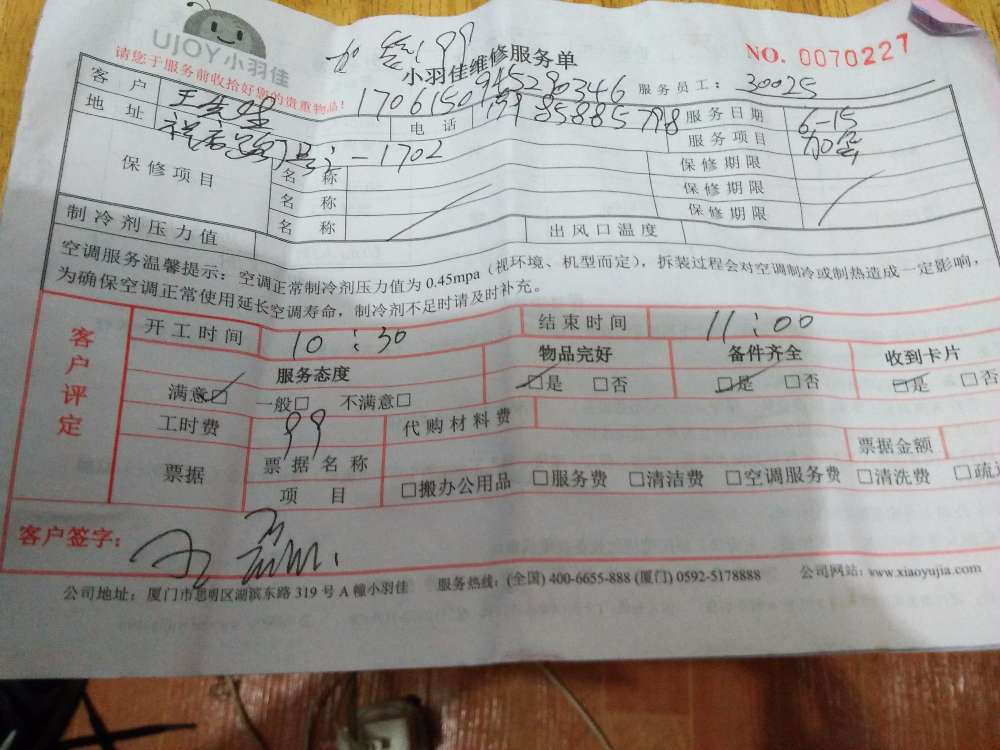 UJOY 小羽佳
请您于服务前收拾好您的贵重物品!
99
小羽佳维修服务单
NO. 0070227
170615094529 0346
服务员工: 30025
客户 王
电话
服务日期 6-15
地址 -1702
服务项目
保修项目
名称
保修期限
名称
保修期限
名称
保修期限
制冷剂压力值
出风口温度
空调服务温馨提示: 空调正常制冷剂压力值为 0.45mpa (视环境、机型而定), 拆装过程会对空调制冷或制热造成一定影响,
为确保空调正常使用延长空调寿命, 制冷剂不足时请及时补充。
客户评定
开工时间 10:30
结束时间 11:00
服务态度
物品完好
备件齐全
收到卡片
满意□ 一般□ 不满意□
□是 □否
□是 □否
□是 □否
工时费 99
代购材料费
票据
票据名称
票据金额
项目
□搬办公用品 □服务费 □清洁费 □空调服务费 □清洗费
客户签字:
公司地址: 厦门市思明区湖滨东路 319 号 A 幢小羽佳 服务热线: (全国) 400-6655-888 (厦门) 0592-5178888 公司网站: www.xiaoyujia.com